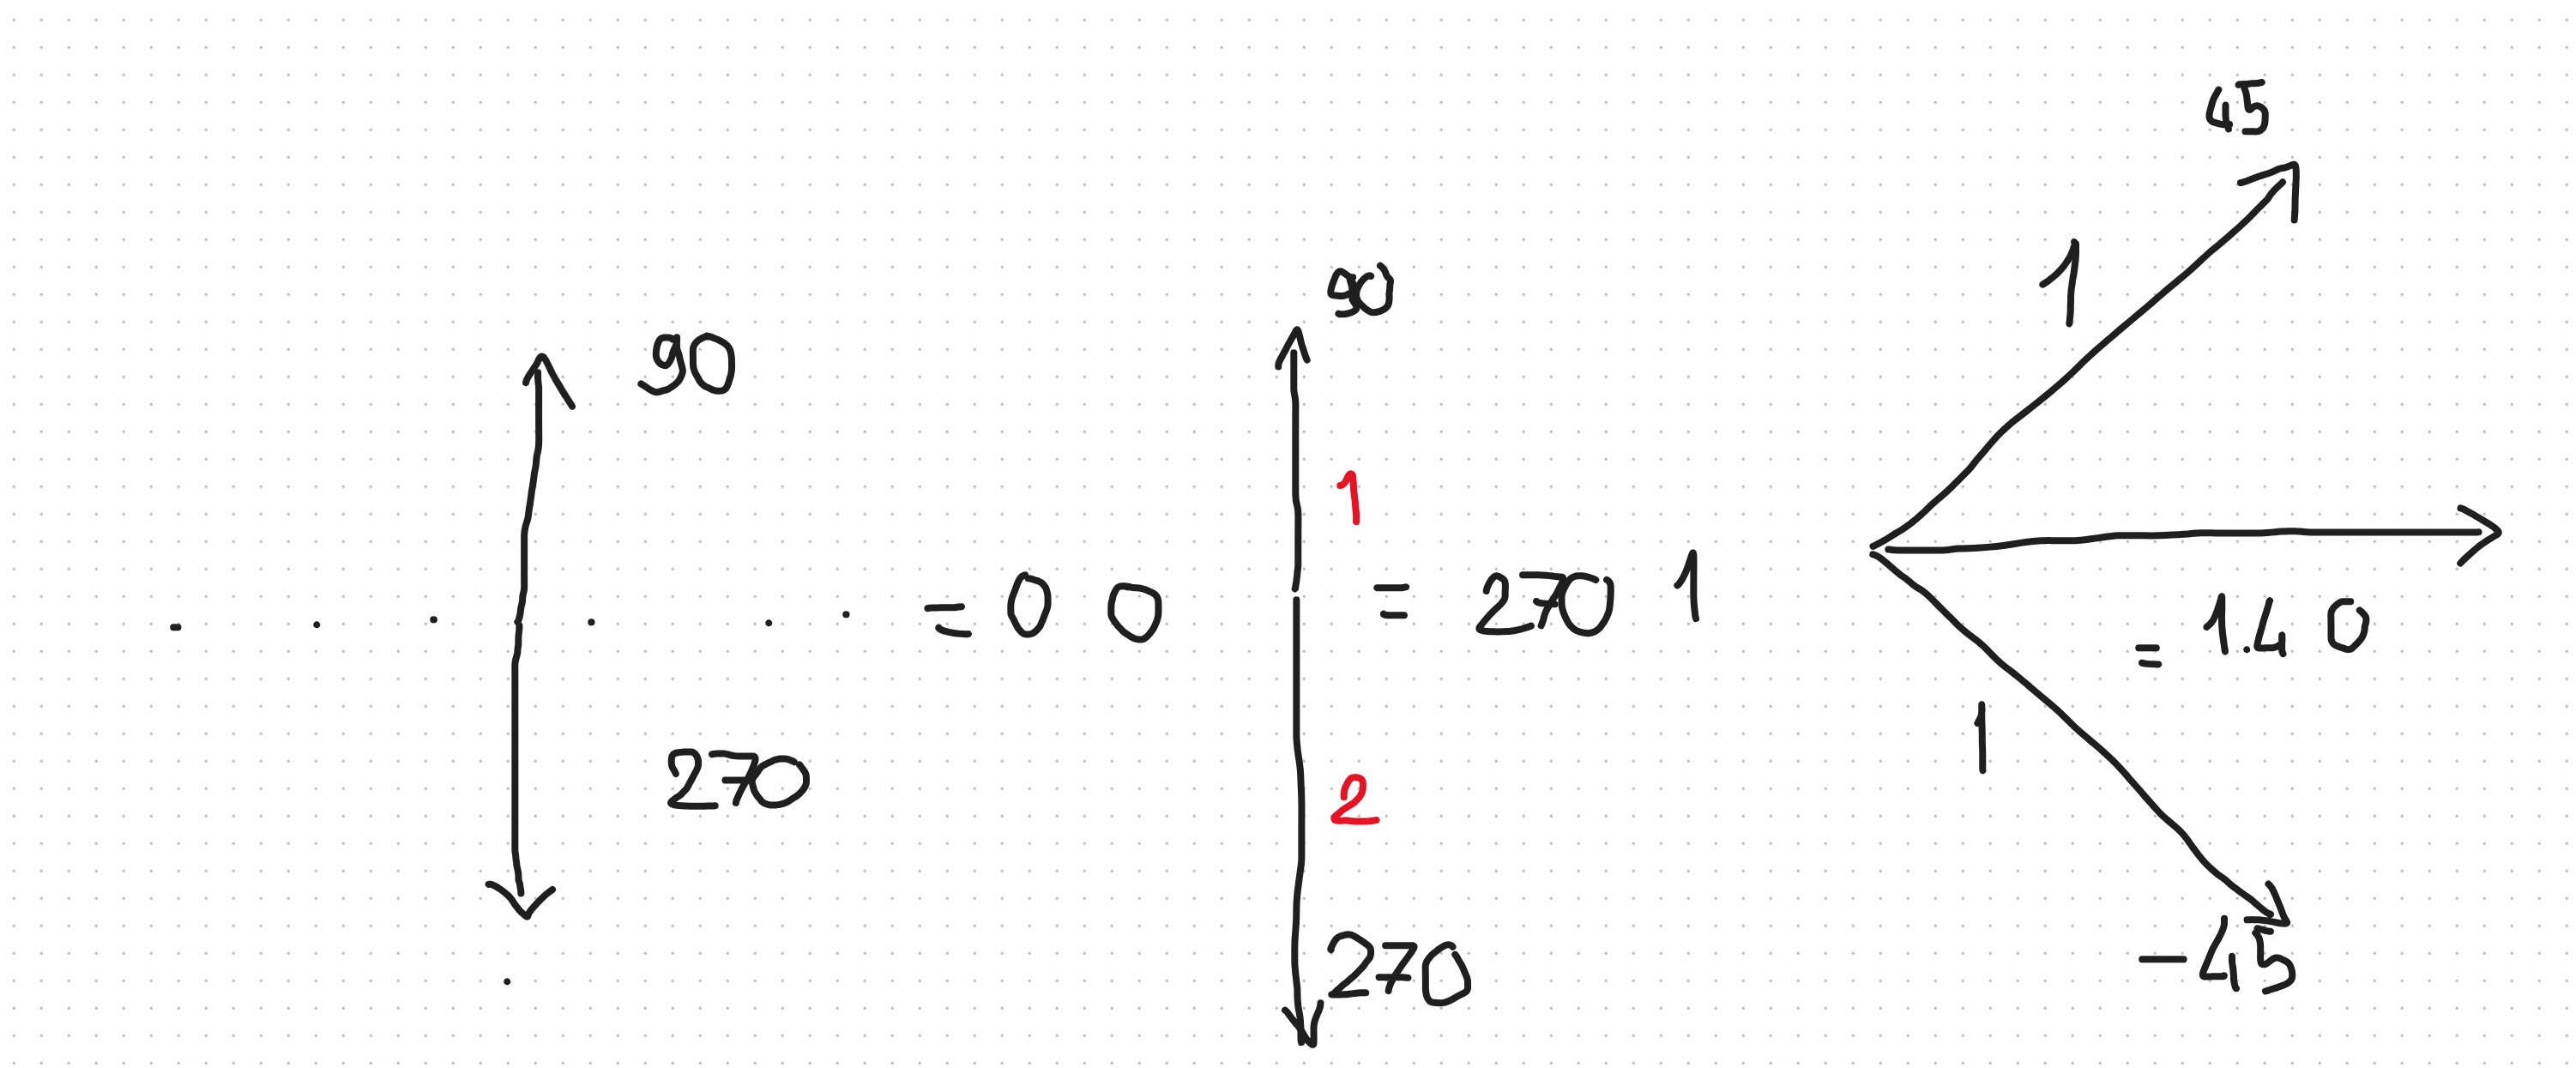 90
= 0 0
270
90
1
= 270 1
2
270
45
1
= 1.4 0
1
-45